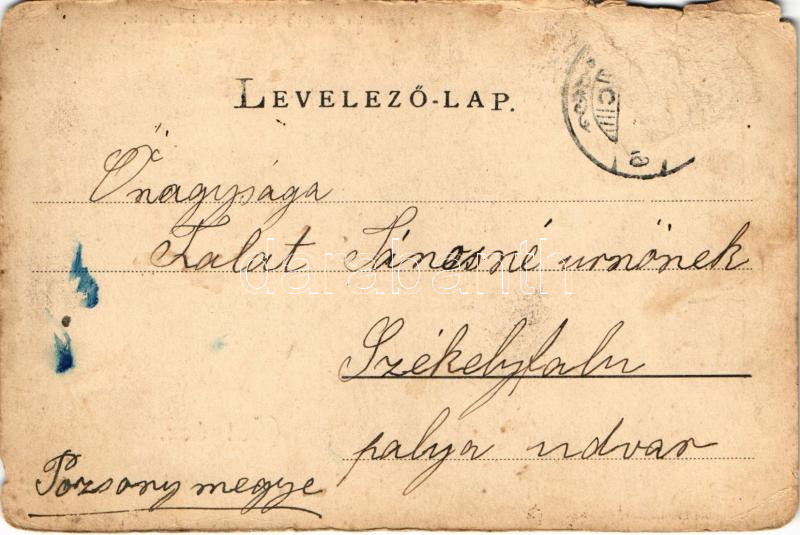 LEVELEZŐ-LAP.
Őnagysága
Zalat Jánosné urnőnek
Székelyfalu
palya udvar
Pozsony megye
darabanth